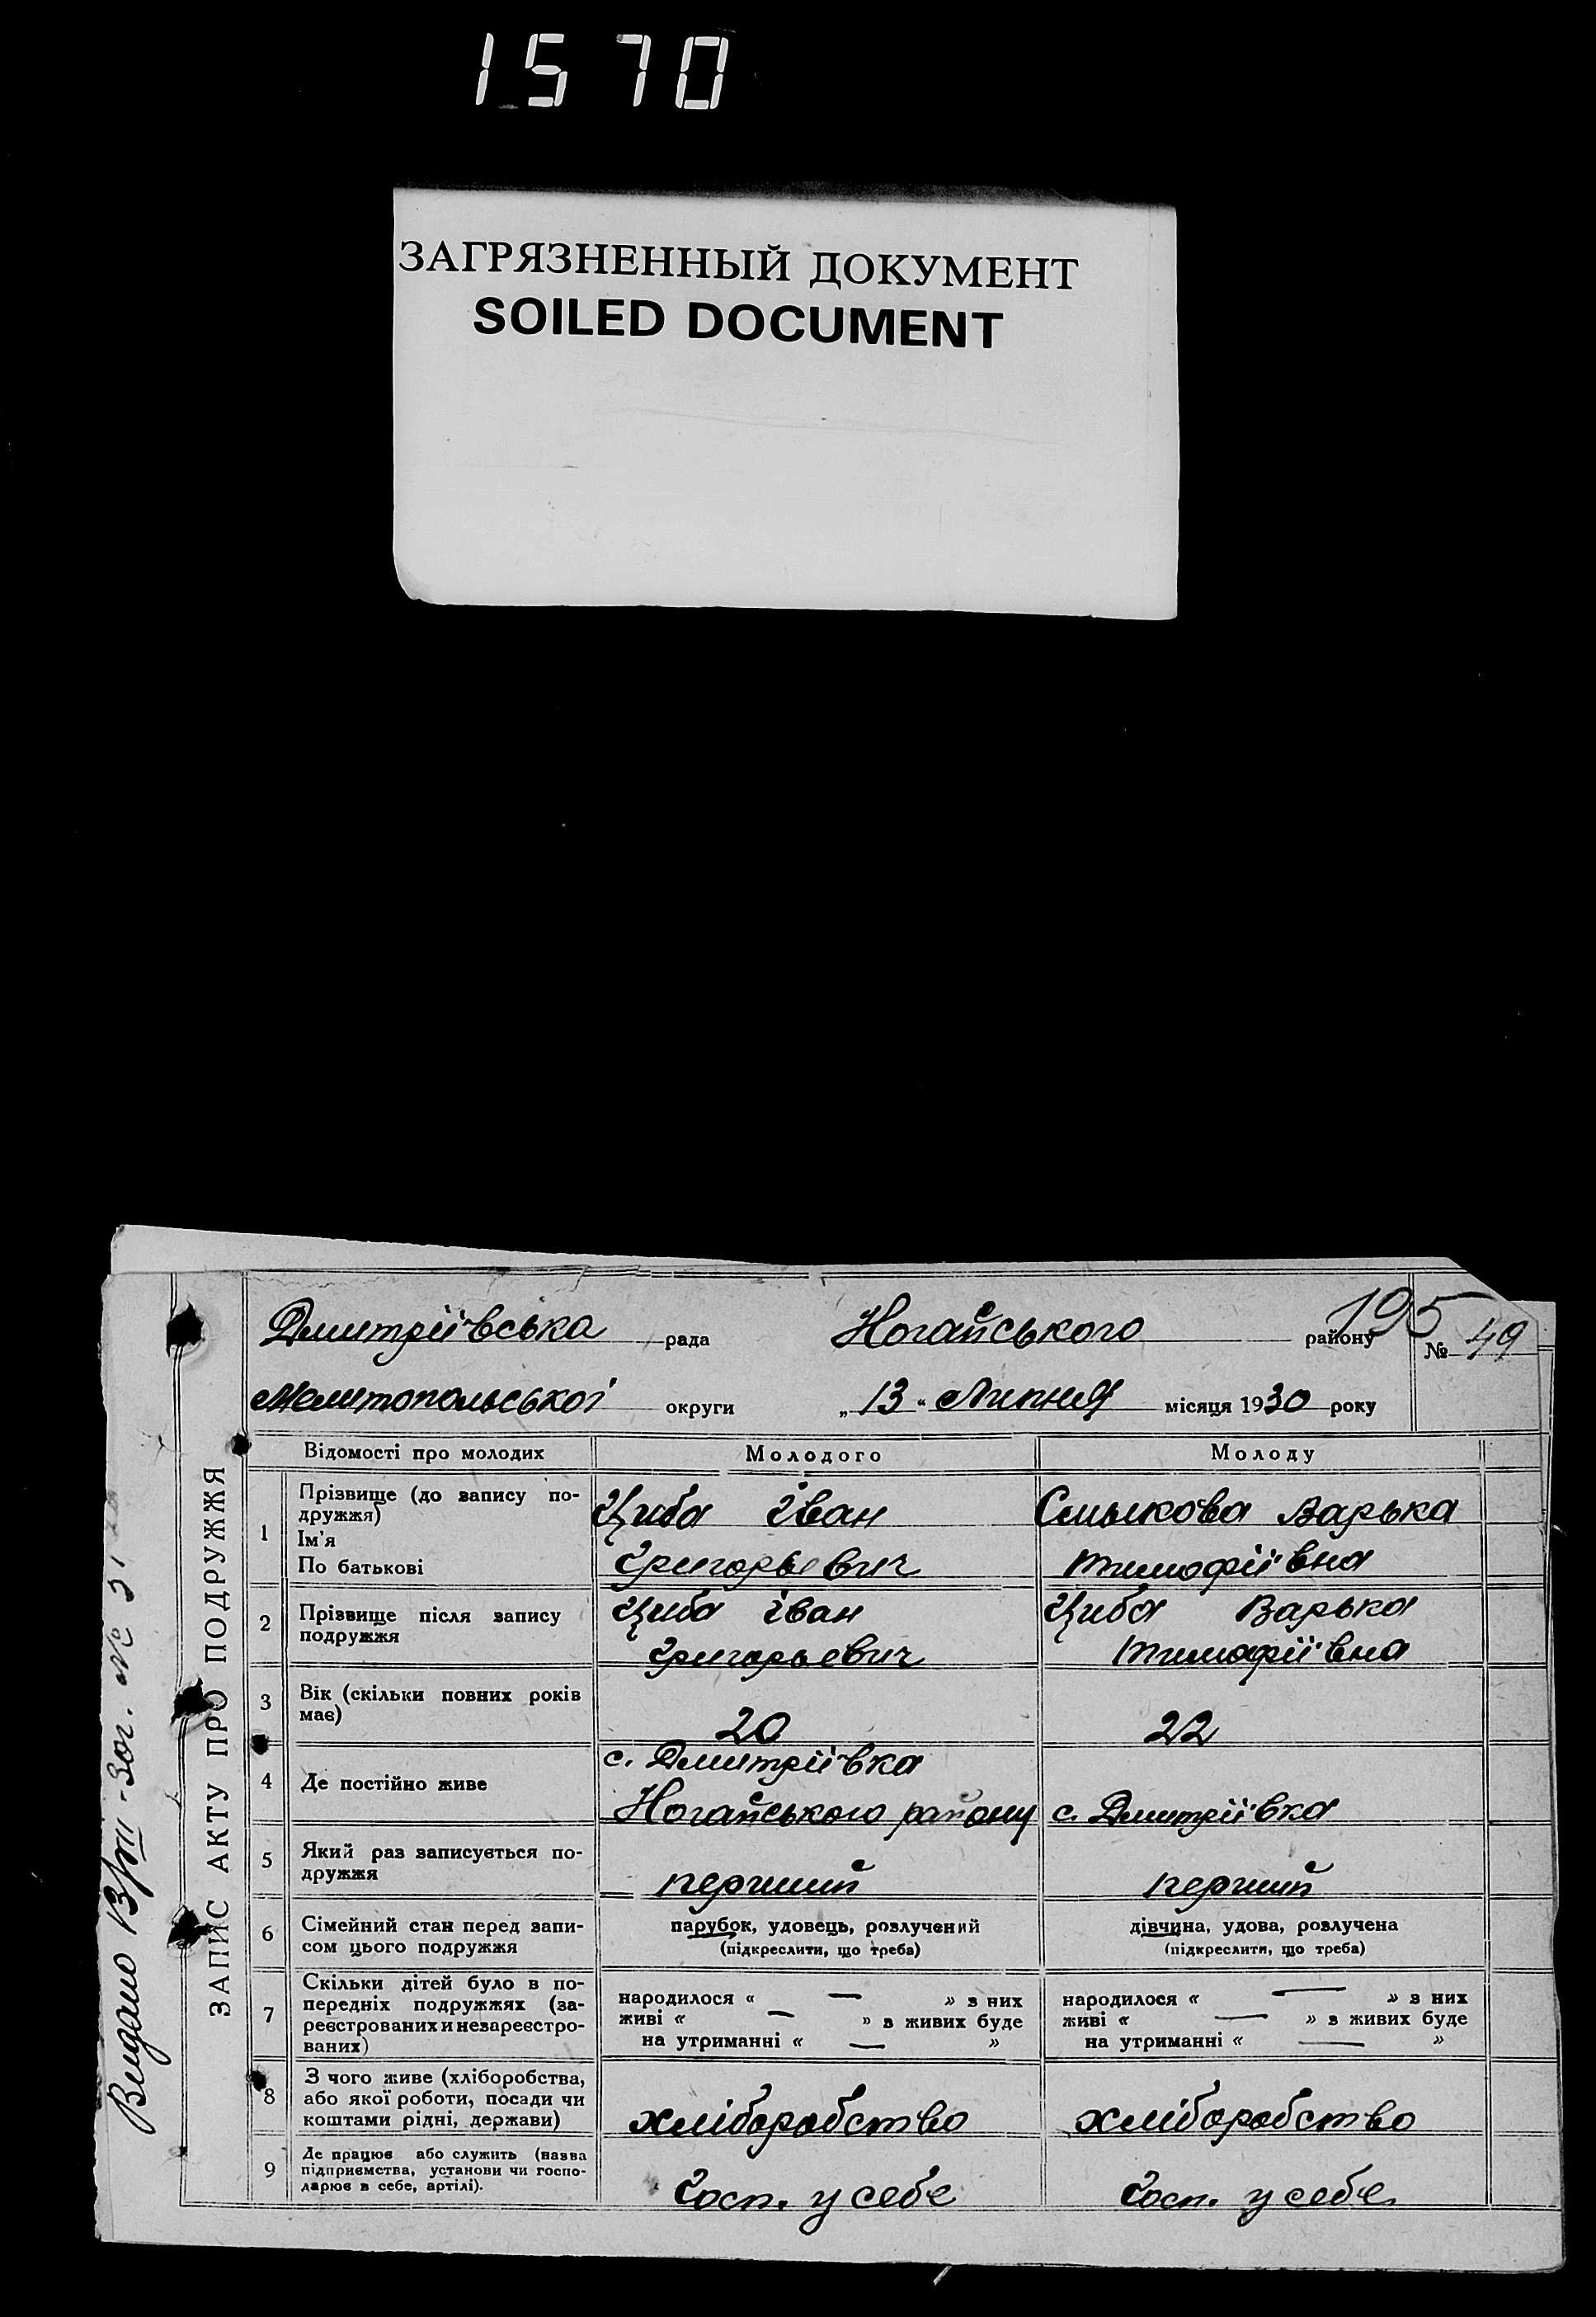 1570
ЗАГРЯЗНЕННЫЙ ДОКУМЕНТ
SOILED DOCUMENT
195
Дмитріївська рада Ногайського району № 49
Мелитопольської округи „13“ Липня місяця 1930 року
Видано В/III - Зог. № 3
ЗАПИС АКТУ ПРО ПОДРУЖЖЯ
Відомості про молодих Молодого Молоду
1 Прізвище (до запису по-
дружжя)
Ім'я
По батькові
Циба Іван
Григорьевич
Смыкова Варька
Тимофіївна
2 Прізвище після запису
подружжя
Циба Іван
Григорьевич
Циба Варька
Тимофіївна
3 Вік (скільки повних років
має)
20
22
4 Де постійно живе
с. Дмитріївка
Ногайського району
с. Дмитріївка
5 Який раз записується по-
дружжя
перший
перший
6 Сімейний стан перед запи-
сом цього подружжя
парубок, удовець, розлучений
(підкреслити, що треба)
дівчина, удова, розлучена
(підкреслити, що треба)
7 Скільки дітей було в по-
передніх подружжях (за-
реєстрованих и незареєстро-
ваних)
народилося « — » з них
живі « — » з живих буде
на утриманні « — »
народилося « — » з них
живі « — » з живих буде
на утриманні « — »
8 З чого живе (хліборобства,
або якої роботи, посади чи
коштами рідні, держави)
хліборобство
хліборобство
9 Де працює або служить (назва
підприємства, установи чи госпо-
дарює в себе, артілі).
Госп. у себе
Госп. у себе